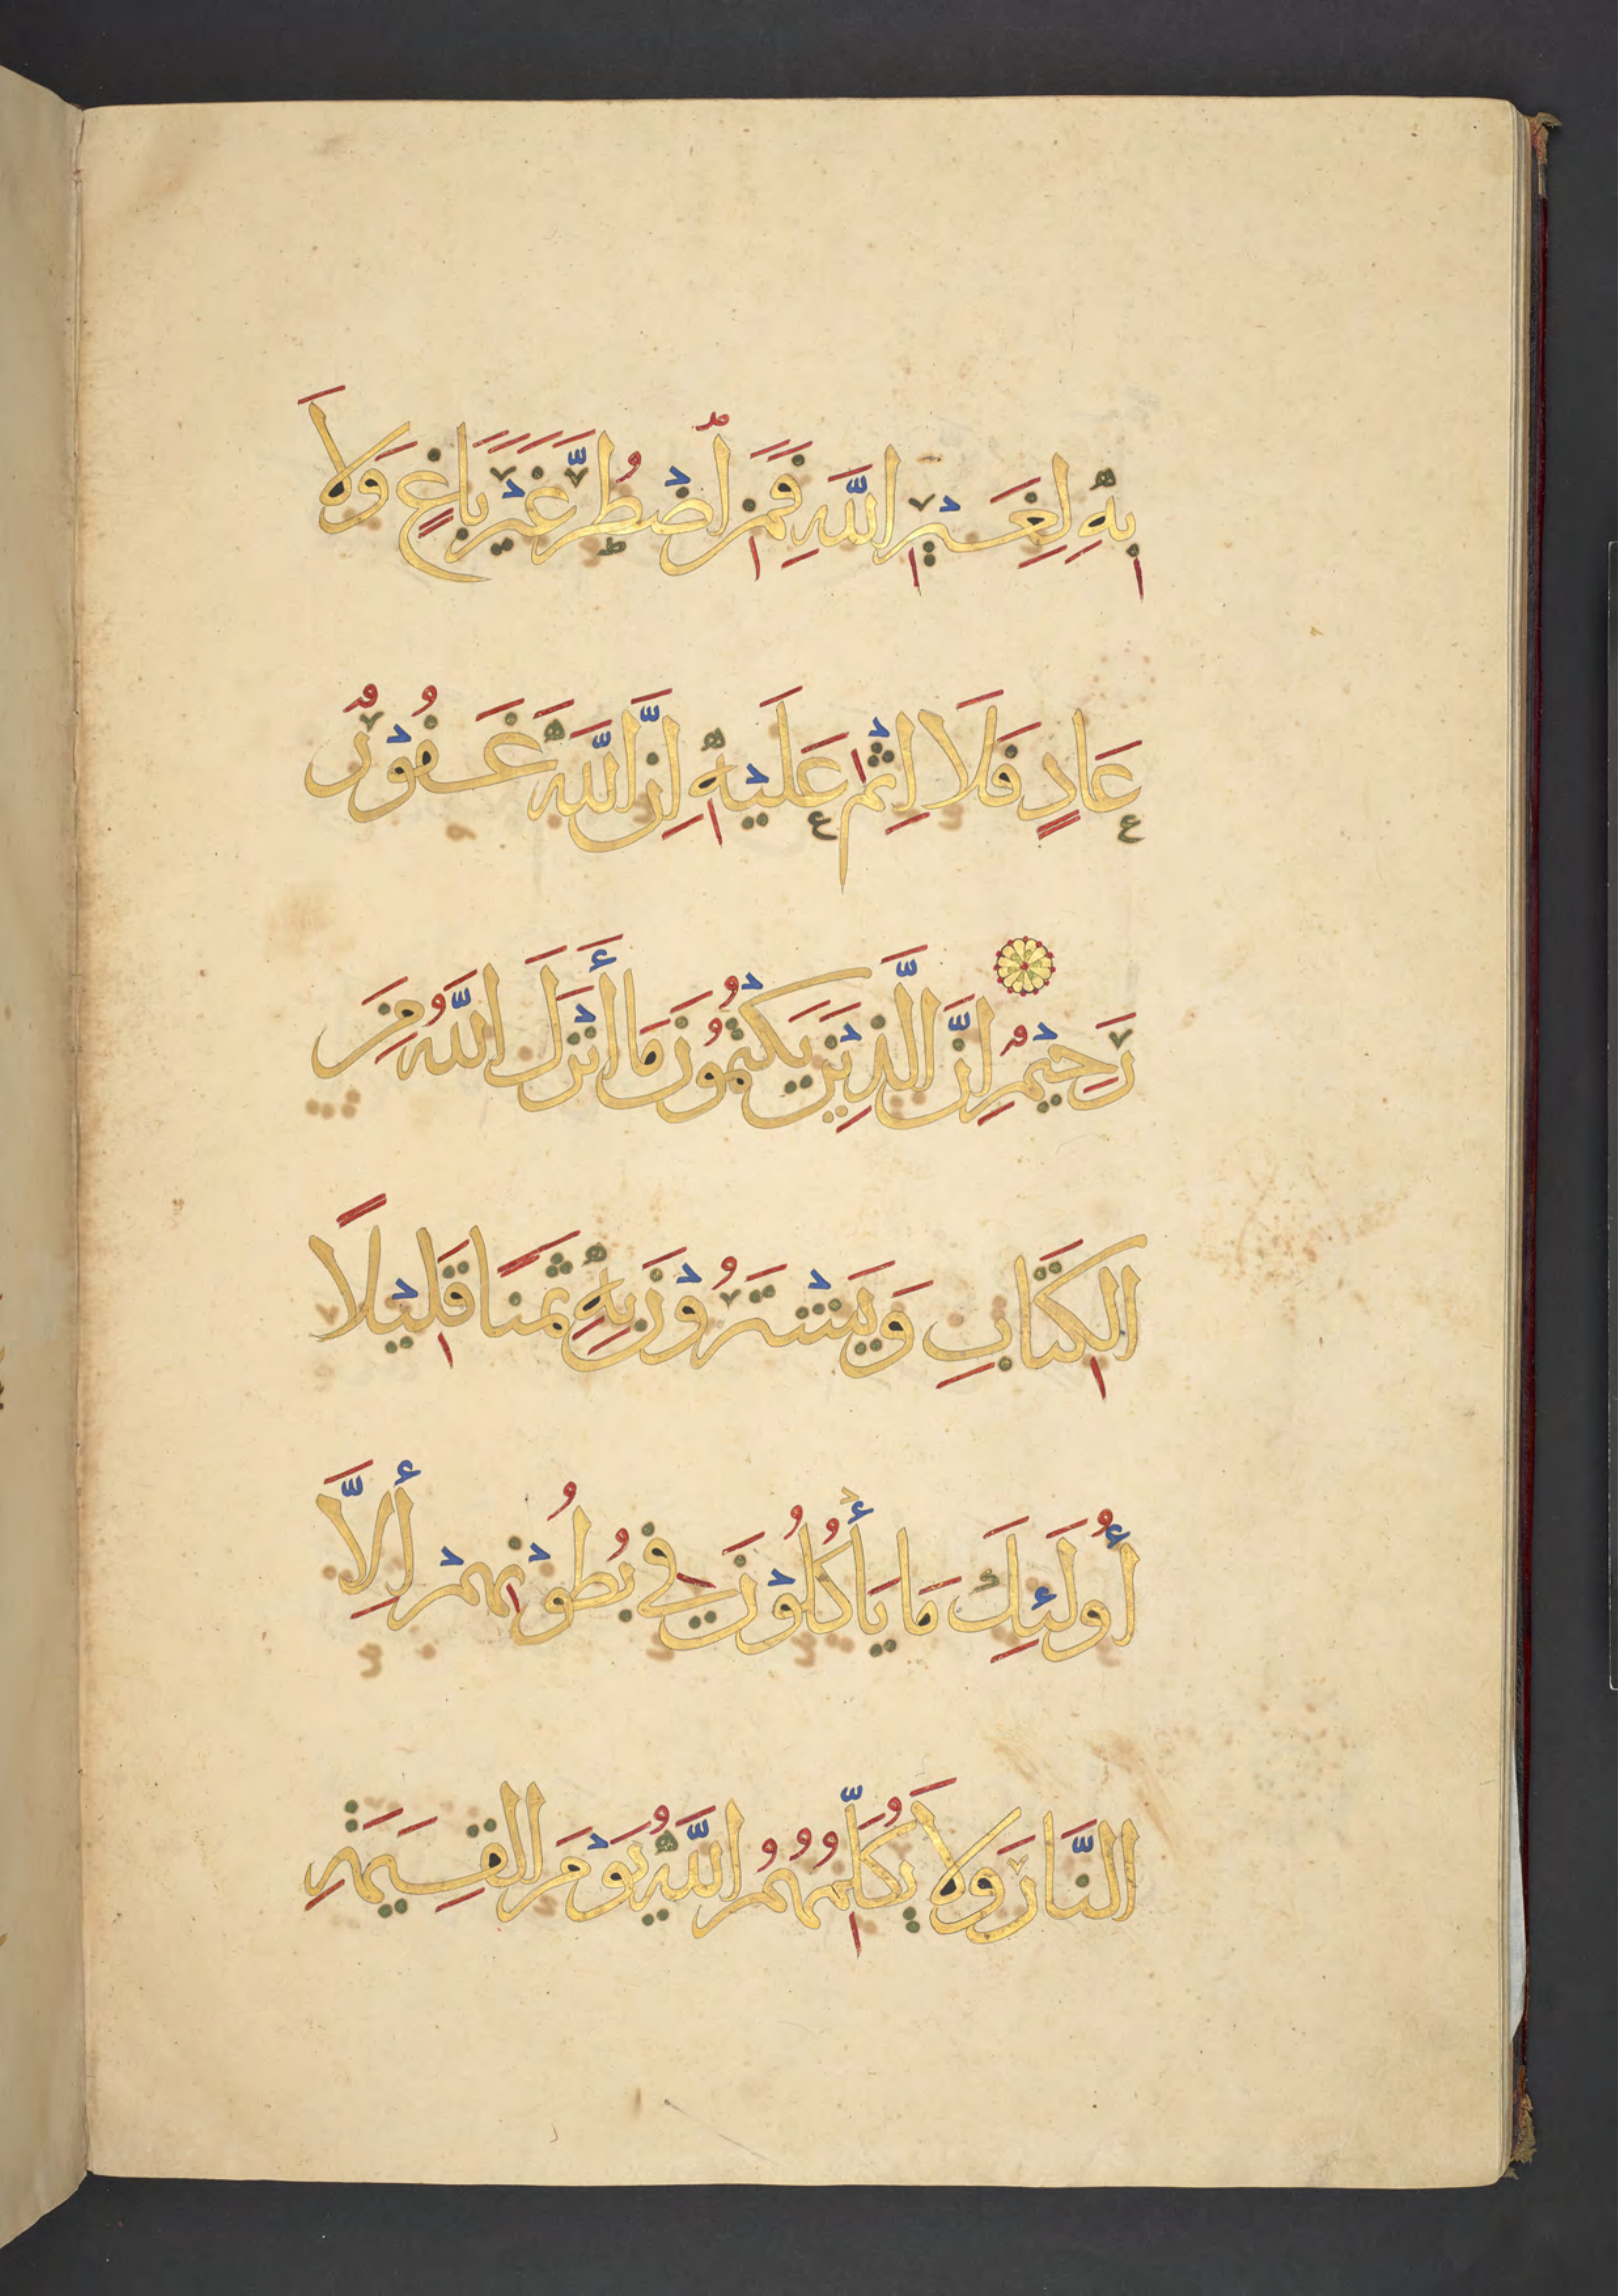 بِهِ لِغَيْرِ اللَّهِ فَمَنِ اضْطُرَّ غَيْرَ بَاغٍ وَلَا
عَادٍ فَلَا إِثْمَ عَلَيْهِ إِنَّ اللَّهَ غَفُوْرٌ
رَحِيْمٌ إِنَّ الَّذِيْنَ يَكْتُمُوْنَ مَا أَنْزَلَ اللَّهُ مِنَ
الْكِتَابِ وَيَشْتَرُوْنَ بِهِ ثَمَنًا قَلِيْلًا
أُولَئِكَ مَا يَأْكُلُوْنَ فِي بُطُوْنِهِمْ إِلَّا
النَّارَ وَلَا يُكَلِّمُهُمُ اللَّهُ يَوْمَ الْقِيَمَةِ